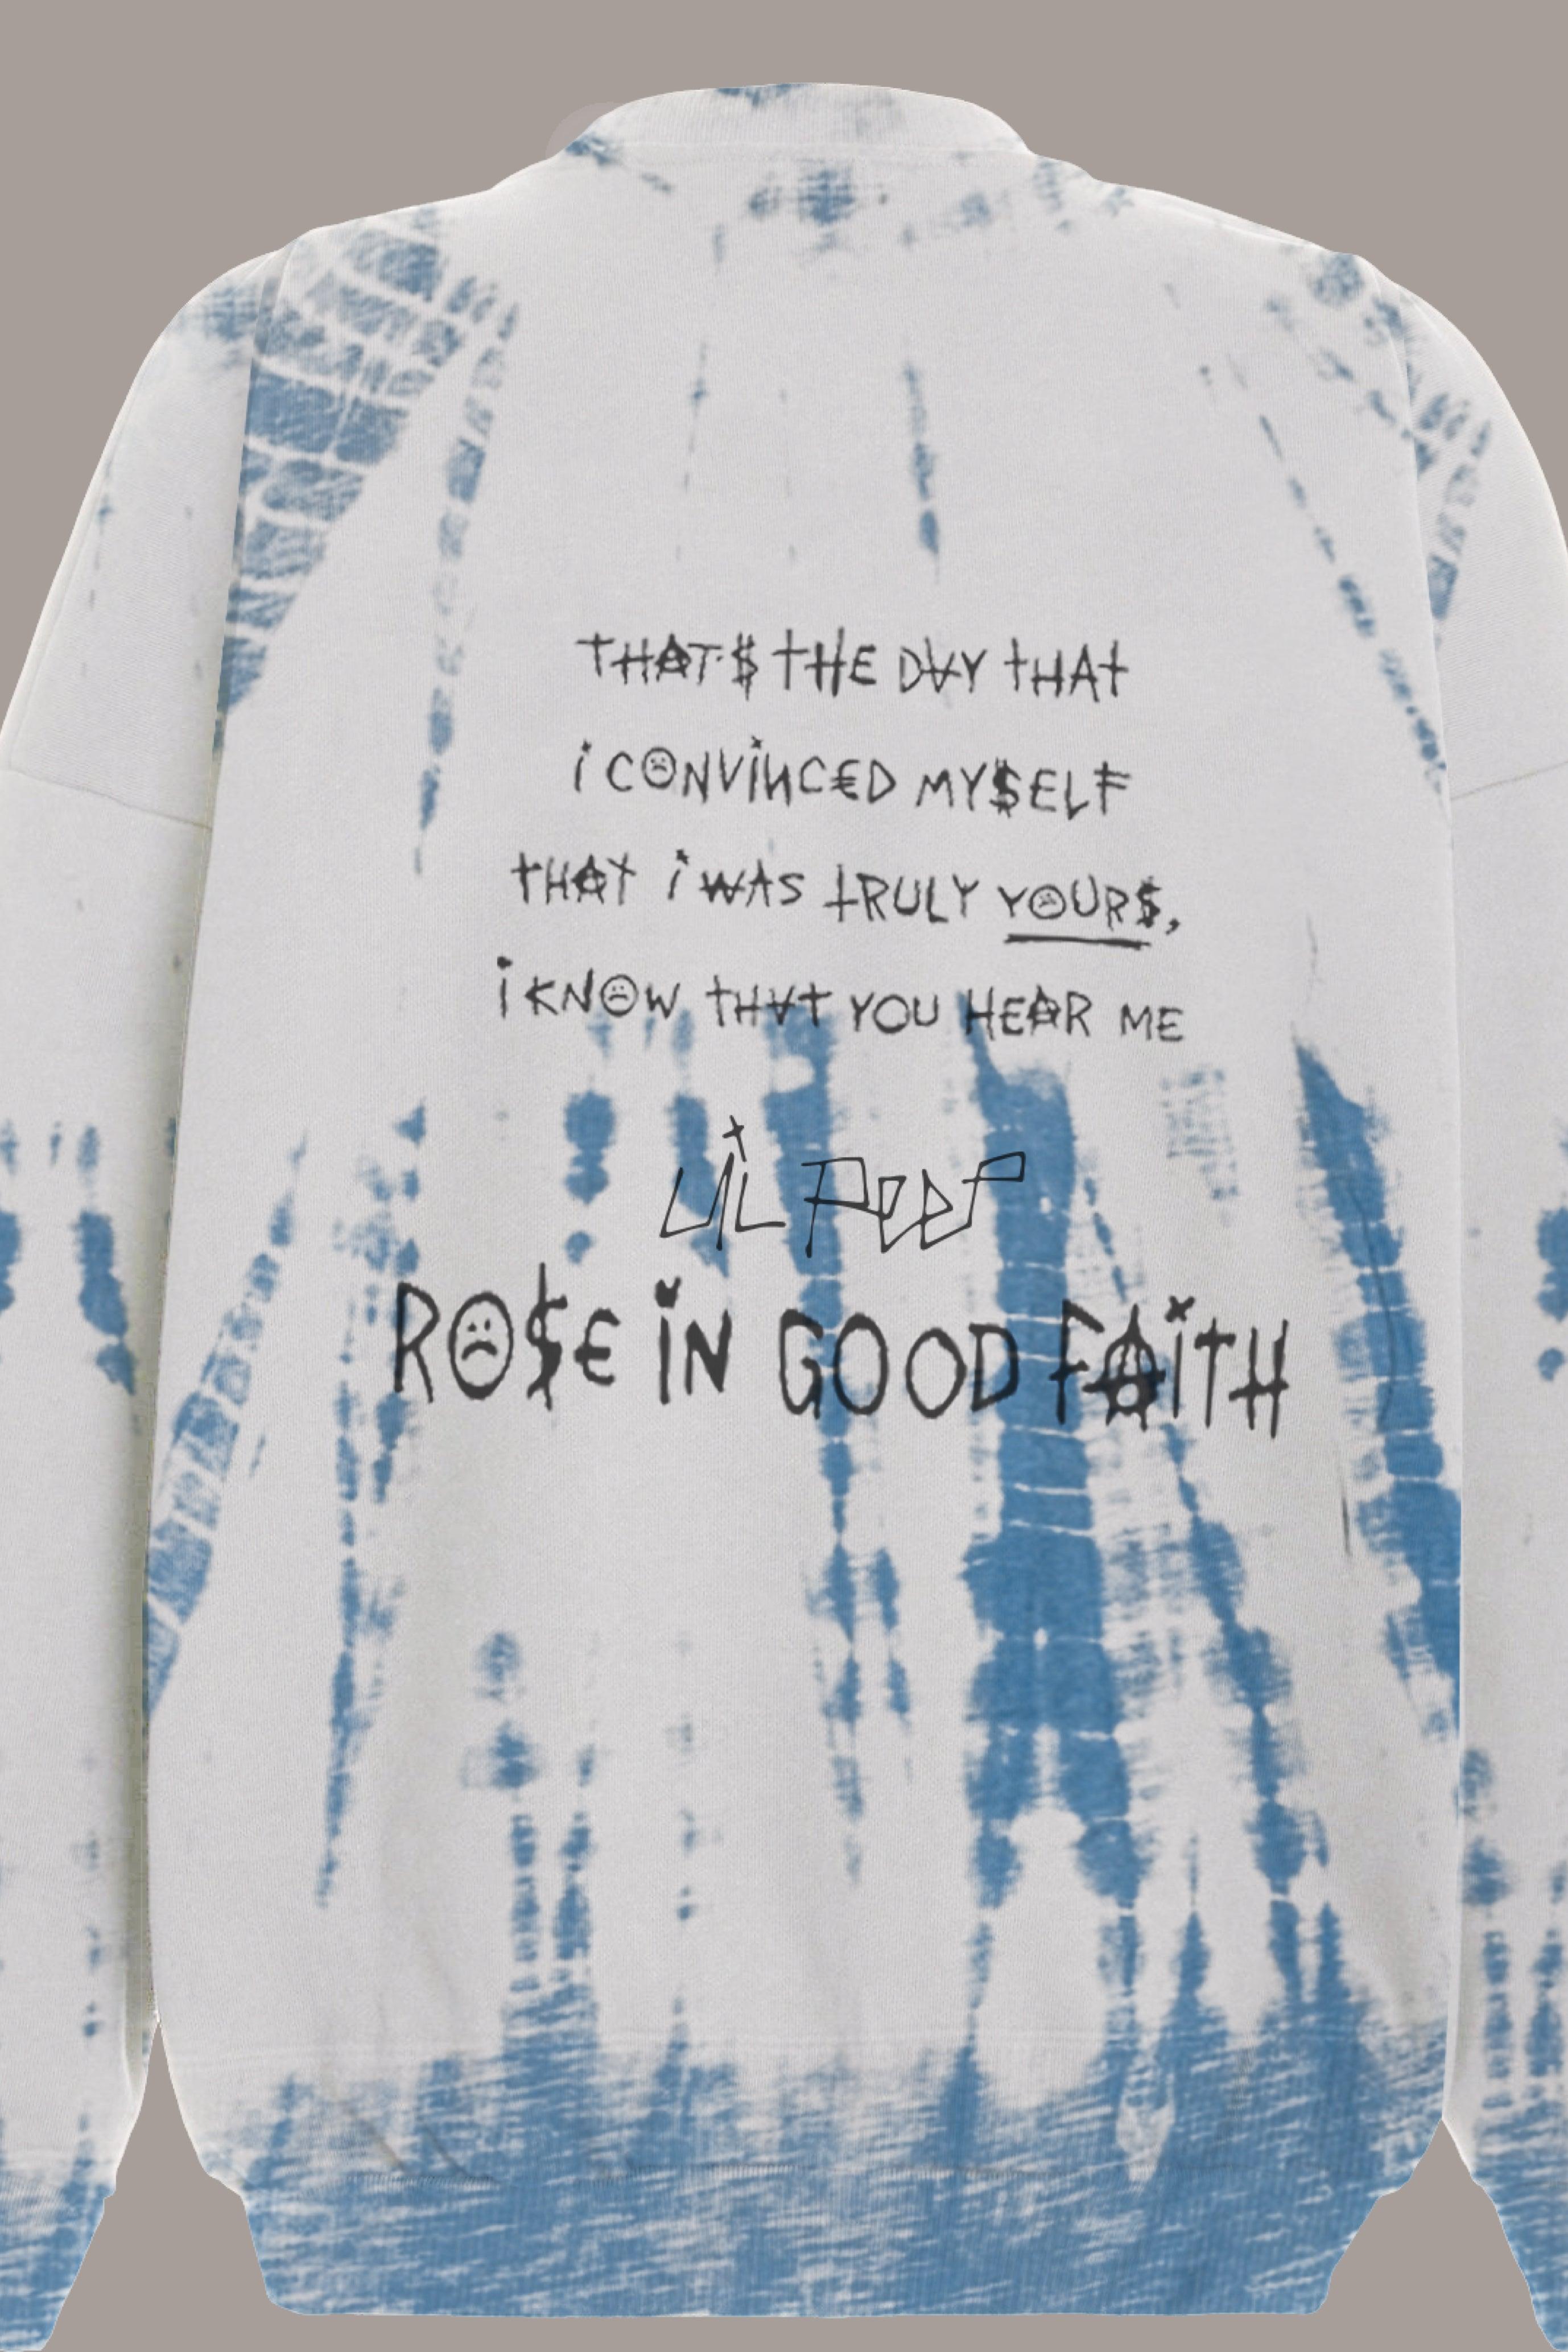 THAT'$ THE DAY THAT
i CONViNC€D MY$ELF
THAT i WAS TRULY YOUR$,
i KNOW THAT YOU HEAR ME
LiL PEEP
RO$E iN GOOD FAiTH